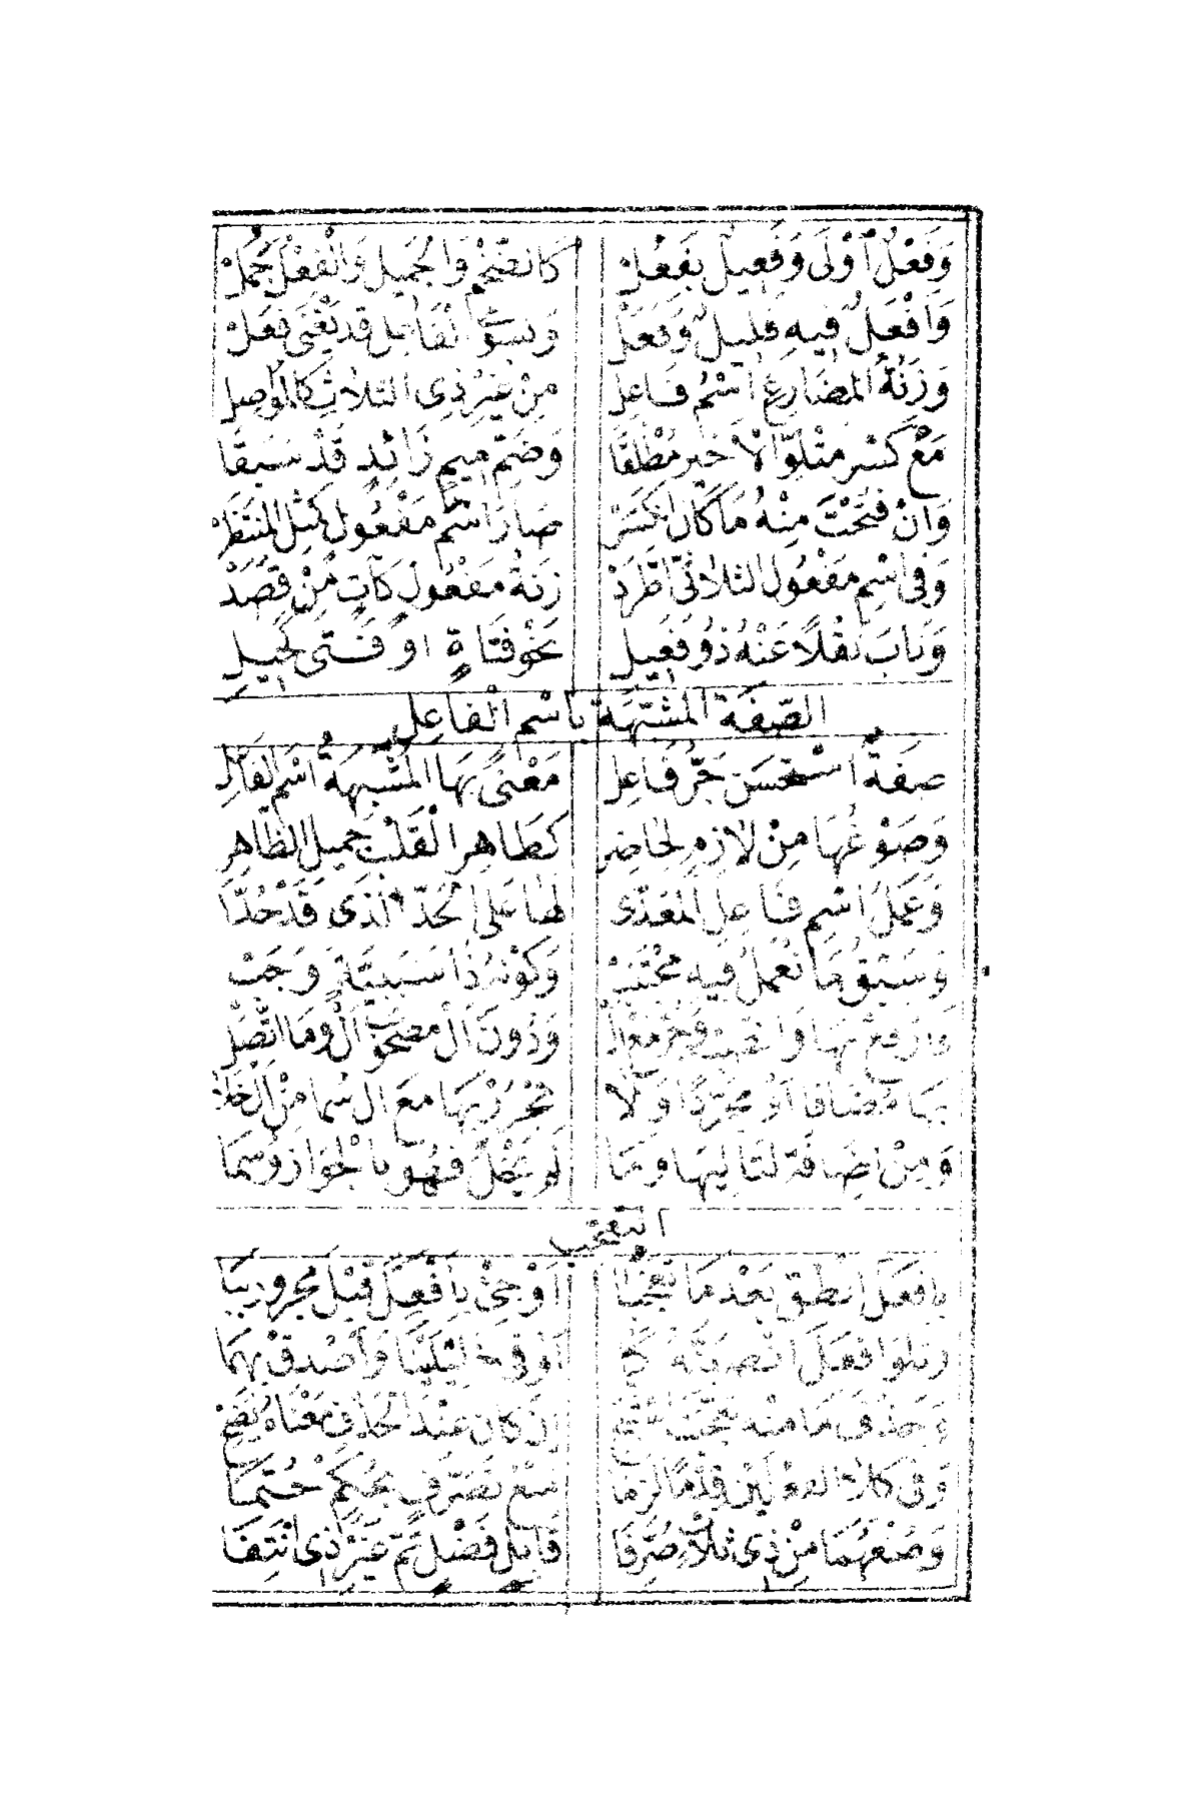 وَفَعْلٌ اَوْلَى وَفَعِيلٌ بِفَعُلْ كَالضَّخْمِ وَالْجَمِيلِ وَالْفِعْلُ جَمُلْ
وَاَفْعَلٌ فِيهِ قَلِيلٌ وَفَعَلْ وَبِسِوَى الْفَاعِلِ قَدْ يَغْنَى فَعَلْ
وَزِنَةُ الْمُضَارِعِ اسْمُ فَاعِلِ مِنْ غَيْرِ ذِى الثَّلَاثِ كَالْمُوَاصِلِ
مَعْ كَسْرِ مَتْلُوِّ الْاَخِيرِ مُطْلَقًا وَضَمِّ مِيمٍ زَائِدٍ قَدْ سَبَقَا
وَاِنْ فَتَحْتَ مِنْهُ مَا كَانَ انْكَسَرْ صَارَ اسْمَ مَفْعُولٍ كَمِثْلِ الْمُنْتَظَرْ
وَفِى اسْمِ مَفْعُولِ الثُّلَاثِىِّ اطَّرَدْ زِنَةُ مَفْعُولٍ كَاٰتٍ مِنْ قَصَدْ
وَنَابَ نَقْلًا عَنْهُ ذُو فَعِيلِ نَحْوُ فَتَاةٍ اَوْ فَتًى كَحِيلِ
الصِّفَةُ الْمُشَبَّهَةُ بِاسْمِ الْفَاعِلِ
صِفَةٌ اسْتُحْسِنَ جَرُّ فَاعِلِ مَعْنًى بِهَا الْمُشْبِهَةُ اسْمَ الْفَاعِلِ
وَصَوْغُهَا مِنْ لَازِمٍ لِحَاضِرِ كَطَاهِرِ الْقَلْبِ جَمِيلِ الظَّاهِرِ
وَعَمَلُ اسْمِ فَاعِلِ الْمُعَدَّى لَهَا عَلَى الْحَدِّ الَّذِى قَدْ حُدَّا
وَسَبْقُ مَا تَعْمَلُ فِيهِ مُجْتَنَبْ وَكَوْنُهُ ذَا سَبَبِيَّةٍ وَجَبْ
فَارْفَعْ بِهَا وَانْصِبْ وَجُرَّ مَعَ اَلْ وَدُونَ اَلْ مَصْحُوبَ اَلْ وَمَا اتَّصَلْ
بِهَا مُضَافًا اَوْ مُجَرَّدًا وَلَا تَجْرُرْ بِهَا مَعَ اَلْ سُمًا مِنْ اَلْ خَلَا
وَمِنْ اِضَافَةٍ لِتَالِيهَا وَمَا لَمْ يَخْلُ فَهْوَ بِالْجَوَازِ وُسِمَا
التعجب
بِاَفْعَلَ انْطِقْ بَعْدَ مَا تَعَجُّبَا اَوْ جِئْ بِاَفْعِلْ قَبْلَ مَجْرُورٍ بِبَا
وَتِلْوَ اَفْعَلَ انْصِبَنَّهُ كَمَا اَوْفَى خَلِيلَيْنَا وَاَصْدِقْ بِهِمَا
وَحَذْفَ مَا مِنْهُ تَعَجَّبْتَ اسْتَبِحْ اِنْ كَانَ عِنْدَ الْحَذْفِ مَعْنَاهُ يَضِحْ
وَفِى كِلَا الْفِعْلَيْنِ قِدْمًا لَزِمَا مَنْعُ تَصَرُّفٍ بِحُكْمٍ حُتِمَا
وَصُغْهُمَا مِنْ ذِى ثَلَاثٍ صُرِّفَا قَابِلِ فَضْلٍ تَمَّ غَيْرِ ذِى انْتِفَا